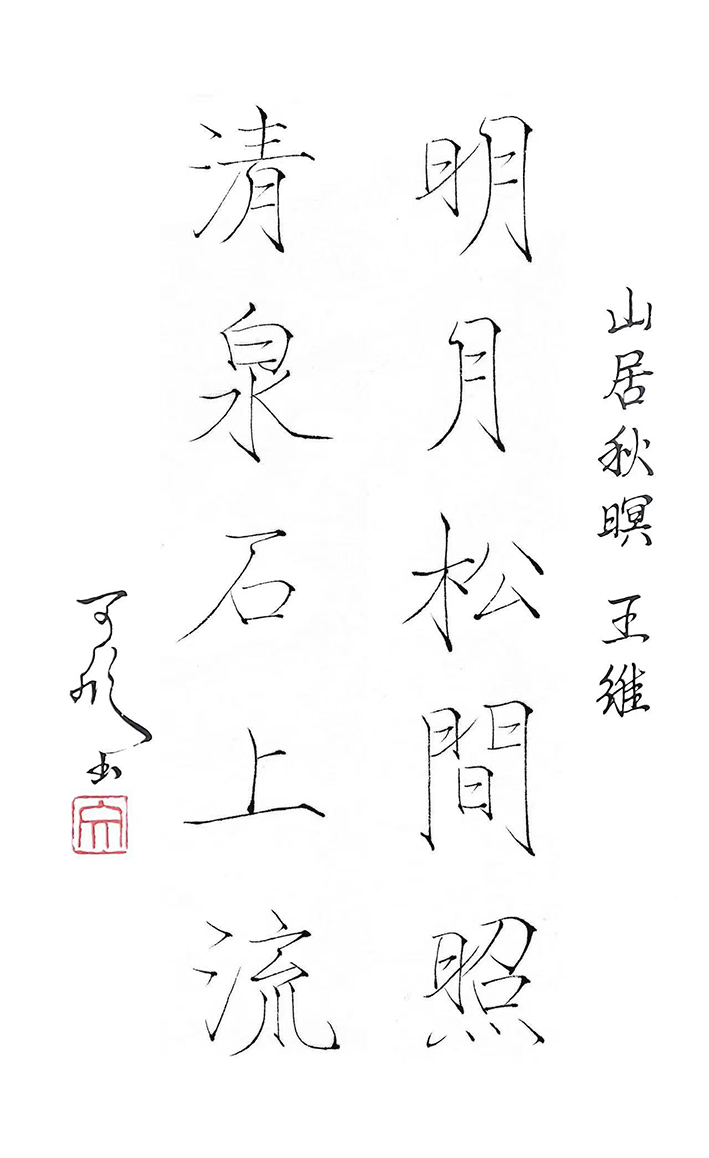 山居秋暝 王維
明月松間照
清泉石上流